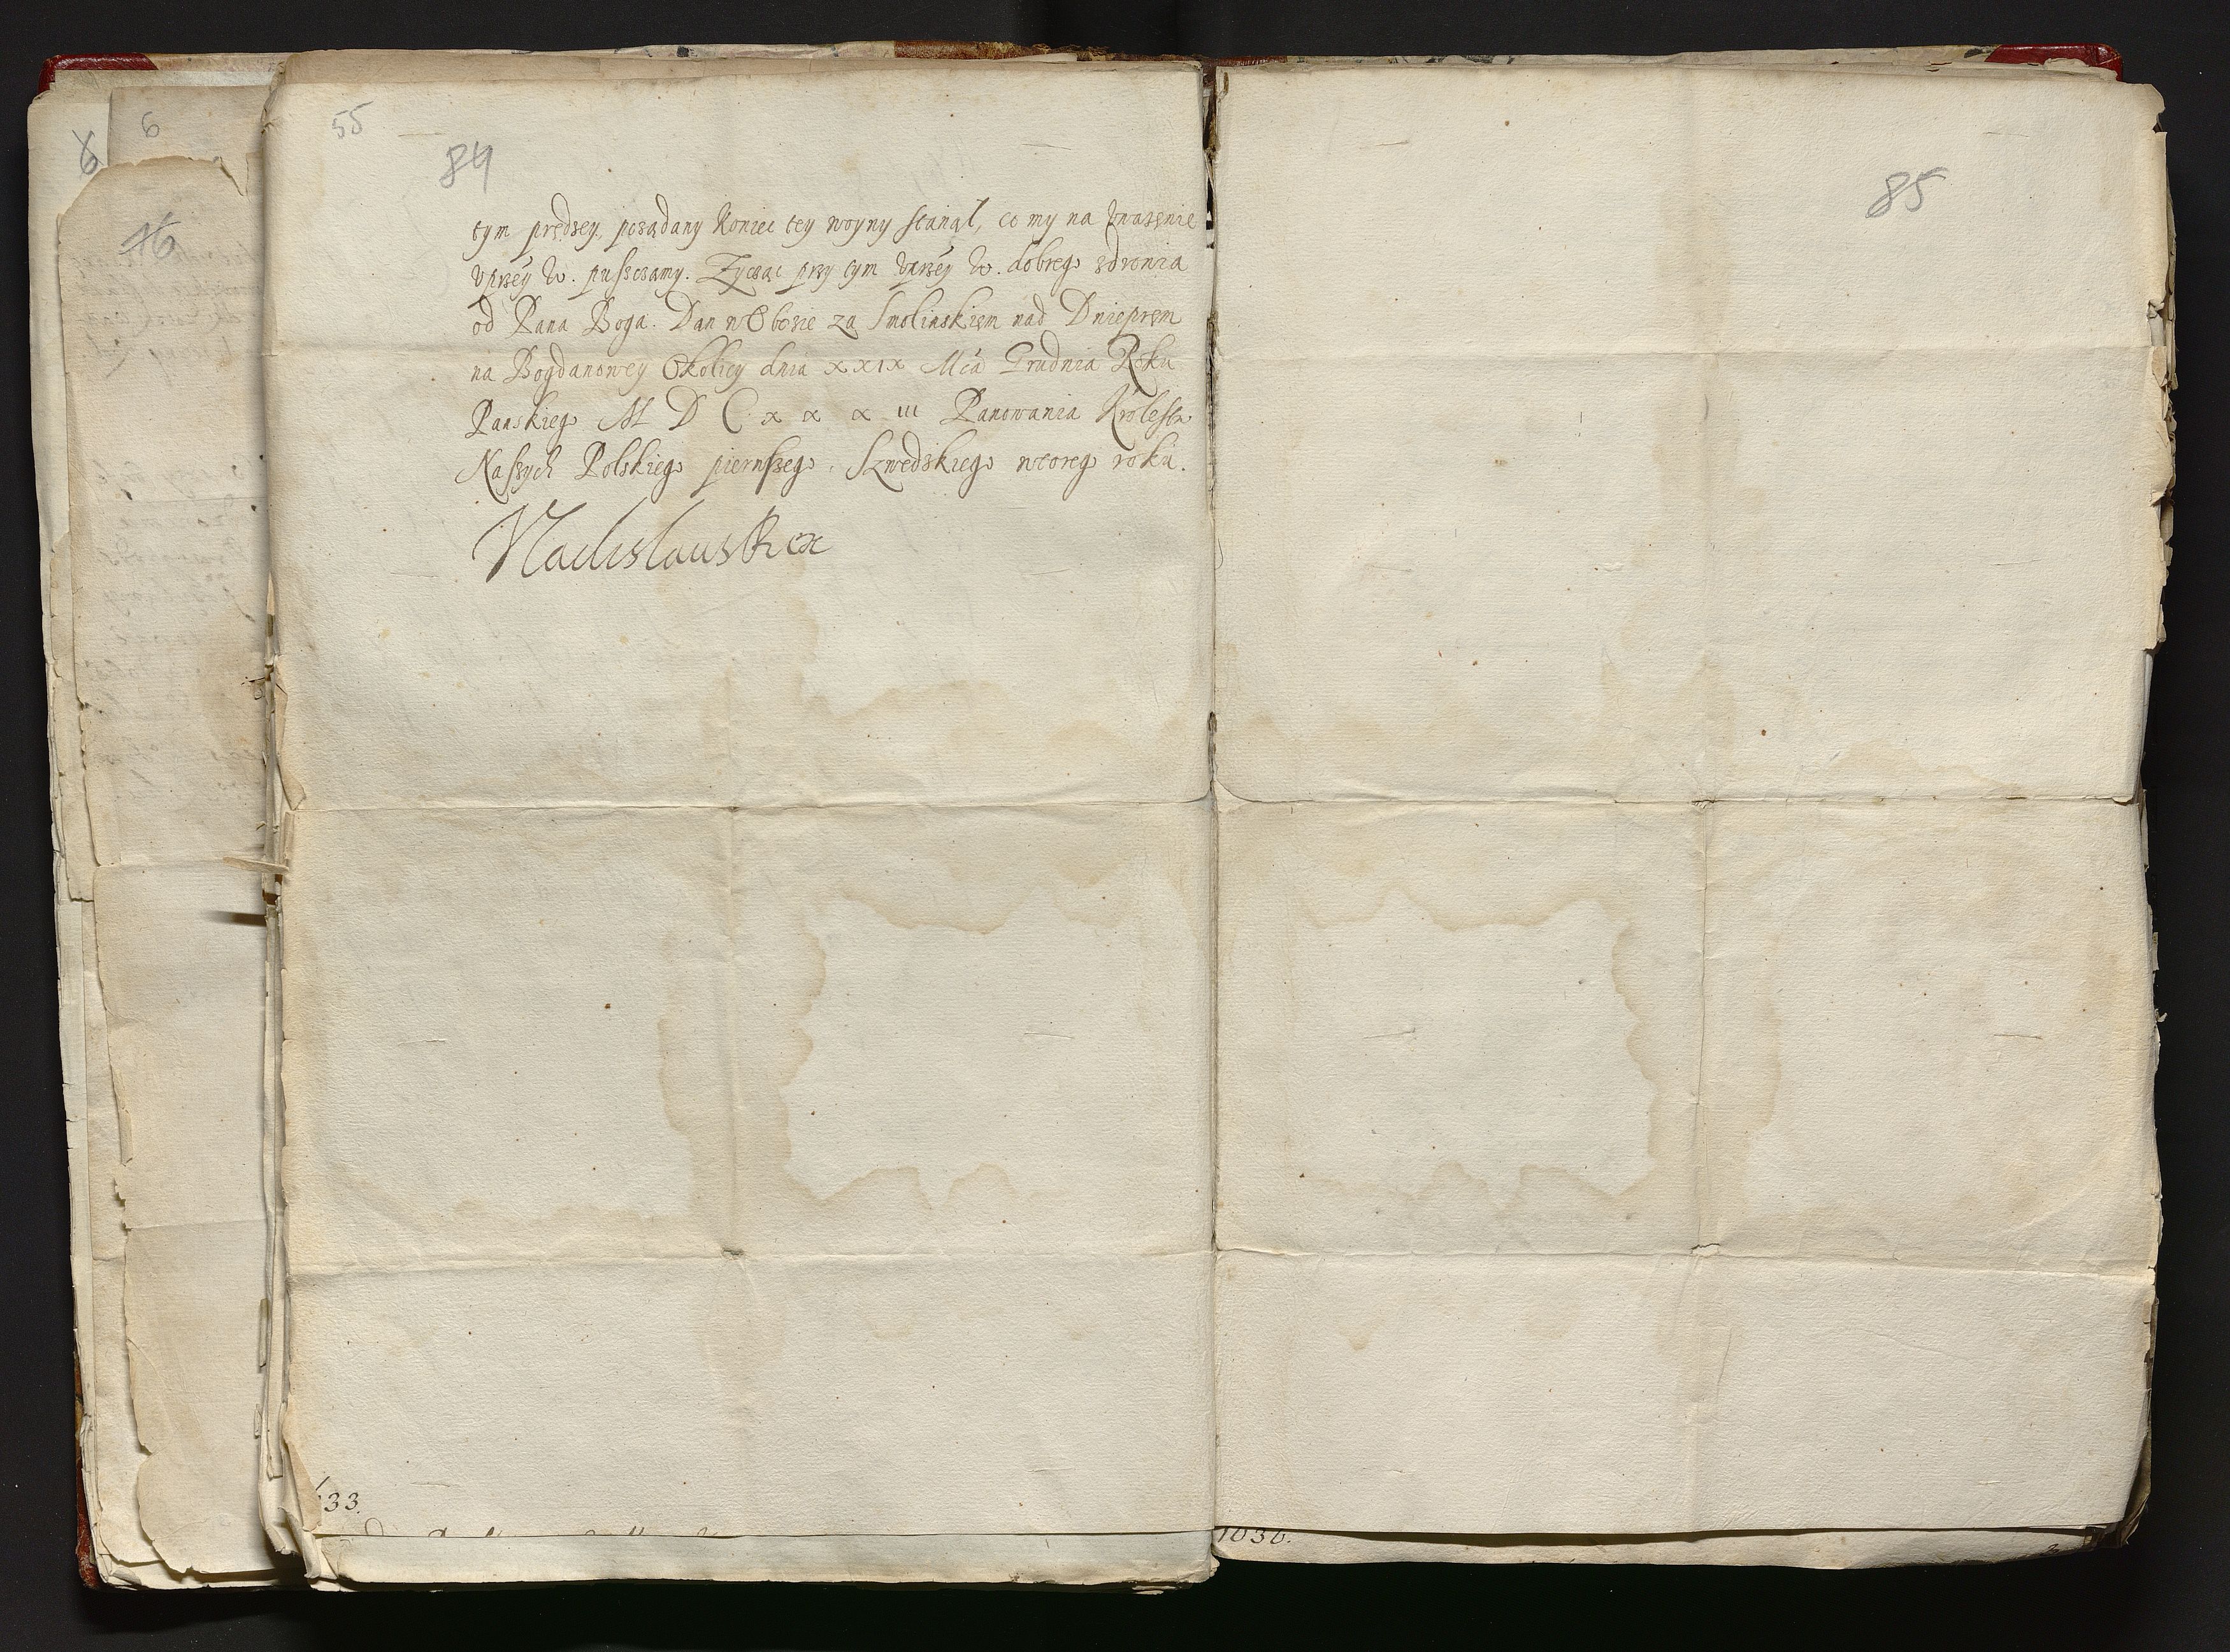 6
6
16
55
84
tym prędzey, pożądany koniec tey woyny stanął, co my na Uważenie
Uprzéy W. puszczamy. Zycząc przy tym Uprzéy W. dobrego zdrowia
od Pana Boga. Dan w Obozie za Smolinskiem nad Dnieprem
na Bogdanowey Okolicy dnia XXIX Mcá Grudnia Roku
Panskiego M D C X X X III Panowania Krolestw
Naszych Polskiego pierwszego, Szwedskiego wtorego roku.
Vladislaus Rex
633.
85
1636.